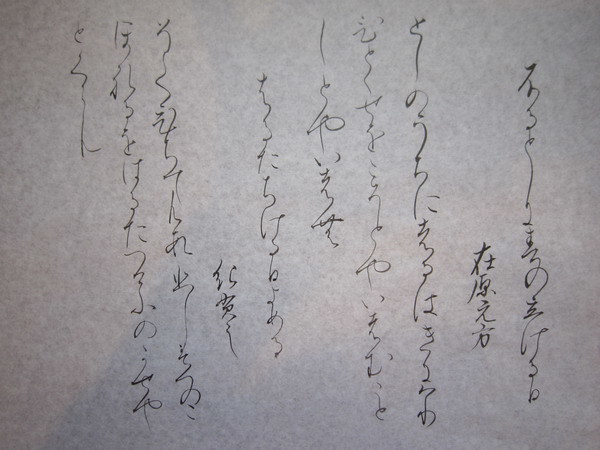 ふるとしに春の立ける日
在原元方
としのうちにはるはきにけり
ひとゝせをこそとやいはむこと
しとやいはむ
はるたちける日よめる
紀貫之
そてひちてむすひしみつのこ
ほれるをはるたつけふのかせや
とくらむ